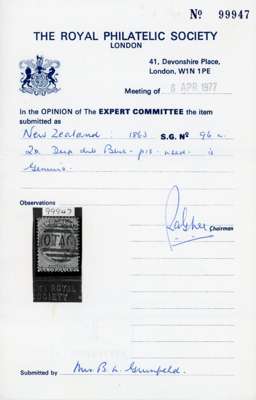 Nº 99947
THE ROYAL PHILATELIC SOCIETY
LONDON
41, Devonshire Place,
London, W1N 1PE
Meeting of 6 APR 1977
In the OPINION of The EXPERT COMMITTEE the item
submitted as
New Zealand: 1863 S.G. Nº 96a.
2d. Deep dull Blue - used - is
Genuine.
Observations
99947
OTAG
Chairman
ROYAL
SOCIETY
Submitted by Mrs B. L. Grunfeld.